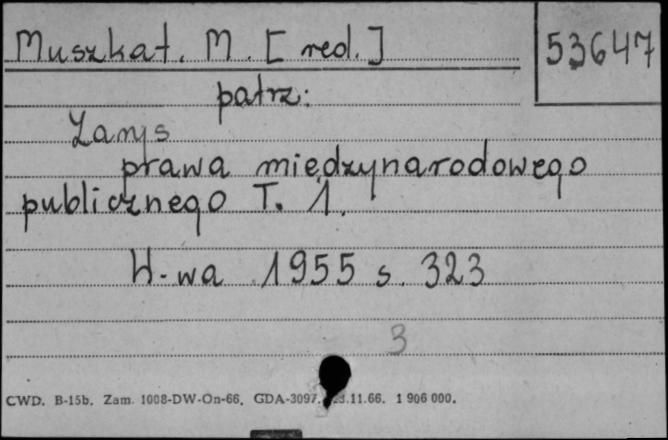 Muszkat. M. [red.]
53647
patrz:
Zarys
prawa międzynarodowego
publicznego T. 1.
W-wa 1955 s. 323
3
CWD. B-15b. Zam. 1008-DW-On-66. GDA-3097. .11.66. 1 906 000.